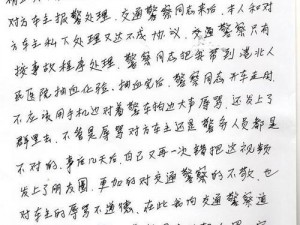 对方车主报警处理，交通警察同志来后，本人和对
方车主私下处理又达不成协议，警察同志只有
按事故程序处理，警察同志把我带到港北人
民医院抽血化验，抽血完后，警察同志开车走时
不应该用手机边对着警车拍边大声辱骂，还发上了
群里去，不管是辱骂对方车主还是警务人员都是
不对的，事后几天后，自己又再一次错把这视频
发上了朋友圈，更加的对交通警察的不敬，也
对车主的辱骂不道德，在此我向交通警察道